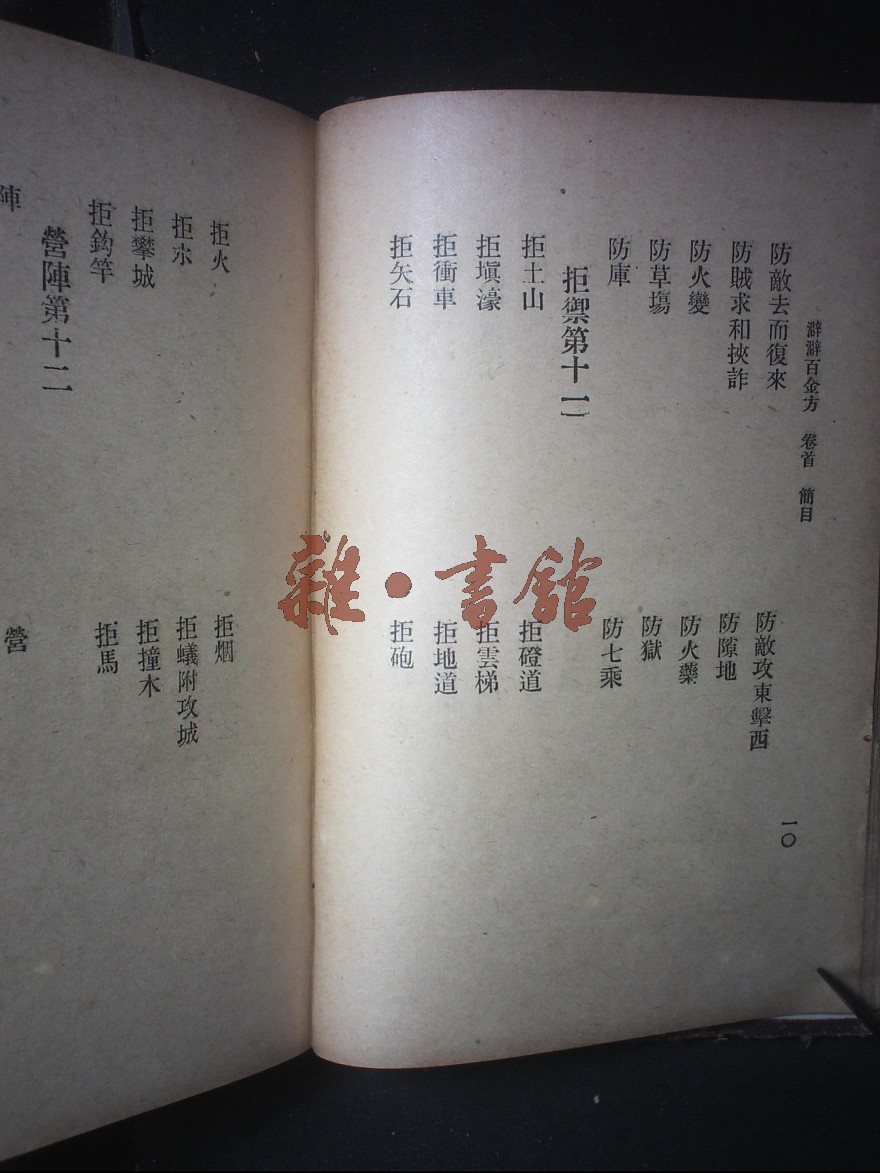 澼澼百金方 卷首 簡目
一〇
防敵去而復來 防敵攻東擊西
防賊求和挾詐 防隙地
防火變 防火藥
防草塲 防獄
防庫 防七乘
拒禦第十一
拒土山 拒磴道
拒塡濠 拒雲梯
拒衝車 拒地道
拒矢石 拒砲
拒火 拒烟
拒水 拒蟻附攻城
拒攀城 拒撞木
拒鈎竿 拒馬
營陣第十二
陣 營
雜·書館